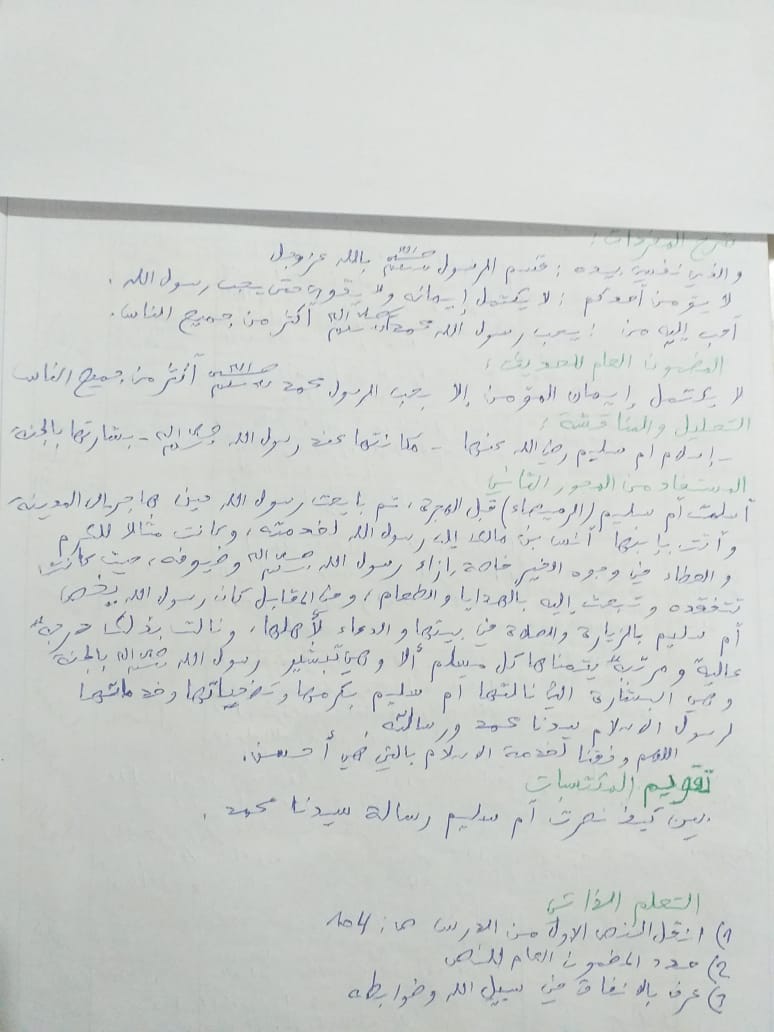 شرح المفردات :
والذي نفسي بيده : قسم الرسول صلى الله عليه وسلم بالله عز وجل
لا يؤمن أحدكم : لا يكتمل إيمانه ولا يقوى حتى يحب رسول الله .
أحب إليه من : يحب رسول الله محمد صلى الله عليه وسلم أكثر من جميع الناس.
المضمون العام للحديث :
لا يكتمل إيمان المؤمن إلا بحب الرسول محمد صلى الله عليه وسلم أكثر من جميع الناس
التحليل والمناقشة :
- إسلام أم سليم رضي الله عنها - مكانتها عند رسول الله صلى الله عليه وسلم - بشارتها بالجنة
المستفاد من المحور الثاني
أسلمت أم سليم (الرميصاء) قبل الهجرة، ثم بايعت رسول الله حين هاجر إلى المدينة
وأتت بابنها أنس بن مالك إلى رسول الله لخدمته، وكانت مثالا للكرم
والعطاء في وجوه الخير خاصة إزاء رسول الله صلى الله عليه وسلم وضيوفه، حيث كانت
تتفقده وتبعث إليه بالهدايا والطعام، وفي المقابل كان رسول الله يخص
أم سليم بالزيارة والصلاة في بيتها والدعاء لأهلها، ونالت بذلك درجة
عالية ومرتبة يتمناها كل مسلم ألا وهي تبشير رسول الله صلى الله عليه وسلم بالجنة
وهي البشارة التي نالتها أم سليم بكرمها وتضحياتها وخدماتها
لرسول الإسلام سيدنا محمد ورسالته.
اللهم وفقنا لخدمة الإسلام بالتي هي أحسن.
تقويم المكتسبات
بين كيف نصرت أم سليم رسالة سيدنا محمد .
التعلم الذاتي
1) انقل النص الاول من الدرس ص: 104
2) حدد المضمون العام للنص
3) عرف بالانفاق في سبيل الله وضوابطه